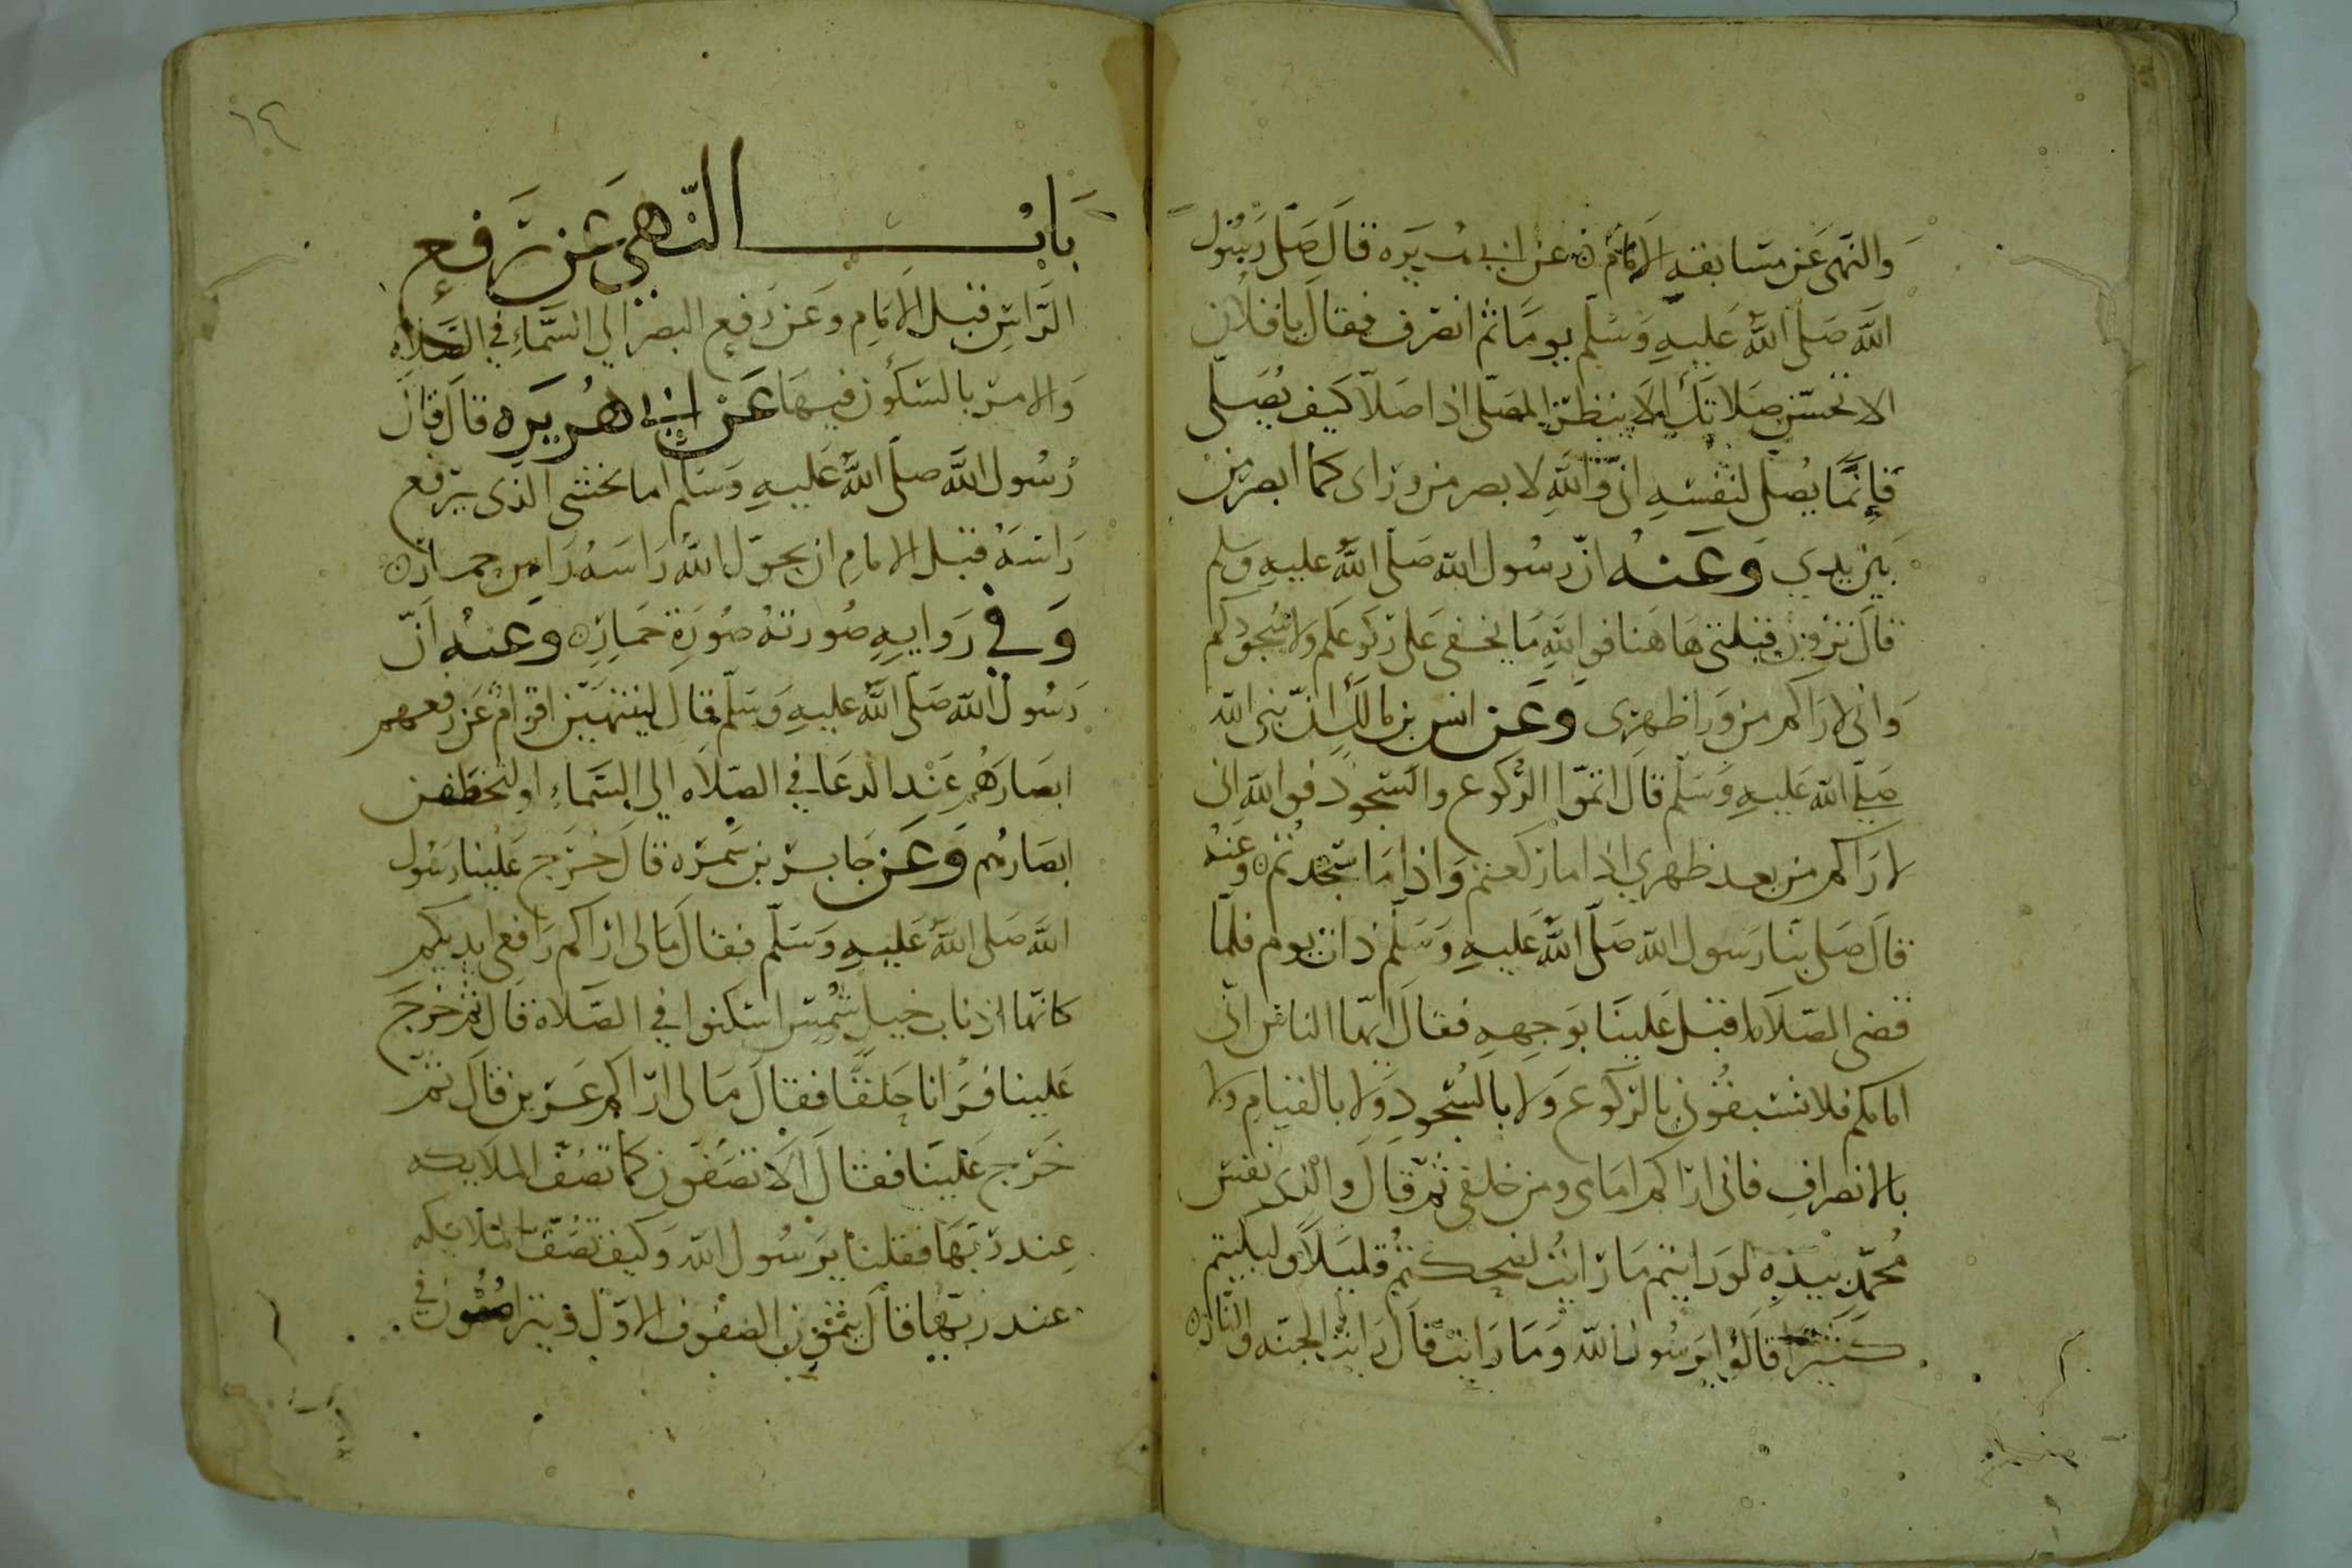 والنهى عن مسابقه الامام عن ابى هريره قال صلى رسول
الله صلى الله عليه وسلم يوما ثم انصرف فقال يا فلان
الا تحسن صلاتك الا ينظر المصلى اذا صلا كيف يصلى
فانما يصلى لنفسه انى والله لابصر من وراى كما ابصر من
بين يدى وعنه ان رسول الله صلى الله عليه وسلم
قال ترون قبلتى هاهنا فوالله ما يخفى على ركوعكم ولا سجودكم
وانى لاراكم من ورا ظهرى وعن انس بن مالك ان نبى الله
صلى الله عليه وسلم قال اتموا الركوع والسجود فوالله انى
لاراكم من بعد ظهرى اذا ما ركعتم واذا ما سجدتم وعنه
قال صلى بنا رسول الله صلى الله عليه وسلم ذات يوم فلما
قضى الصلاه اقبل علينا بوجهه فقال ايها الناس انى
امامكم فلا تسبقون بالركوع ولا بالسجود ولا بالقيام ولا
بالانصراف فانى اراكم امامى ومن خلفى ثم قال والذى نفس
محمد بيده لو رايتم ما رايت لضحكتم قليلا ولبكيتم
كثيرا قالوا يرسول الله وما رايت قال رايت الجنه والنار
١٤
باب النهى عن رفع
الراس قبل الامام وعن رفع البصر الى السماء فى الصلاه
والامر بالسكون فيها عن ابى هريره قال قال
رسول الله صلى الله عليه وسلم اما يخشى الذى يرفع
راسه قبل الامام ان يحول الله راسه راس حمار
وفى روايه صورته صورة حمار وعنه ان
رسول الله صلى الله عليه وسلم قال لينتهين اقوام عن رفعهم
ابصارهم عند الدعا فى الصلاه الى السماء او لتخطفن
ابصارهم وعن جابر بن سمره قال خرج علينا رسول
الله صلى الله عليه وسلم فقال ما لى اراكم رافعى ايديكم
كانها اذناب خيل شمس اسكنوا فى الصلاة قال ثم خرج
علينا فرانا حلقا فقال ما لى اراكم عزين قال ثم
خرج علينا فقال الا تصفون كما تصف الملايكه
عند ربها فقلنا يرسول الله وكيف تصف الملائكه
عند ربها قال يتمون الصفوف الاول ويتراصون فى